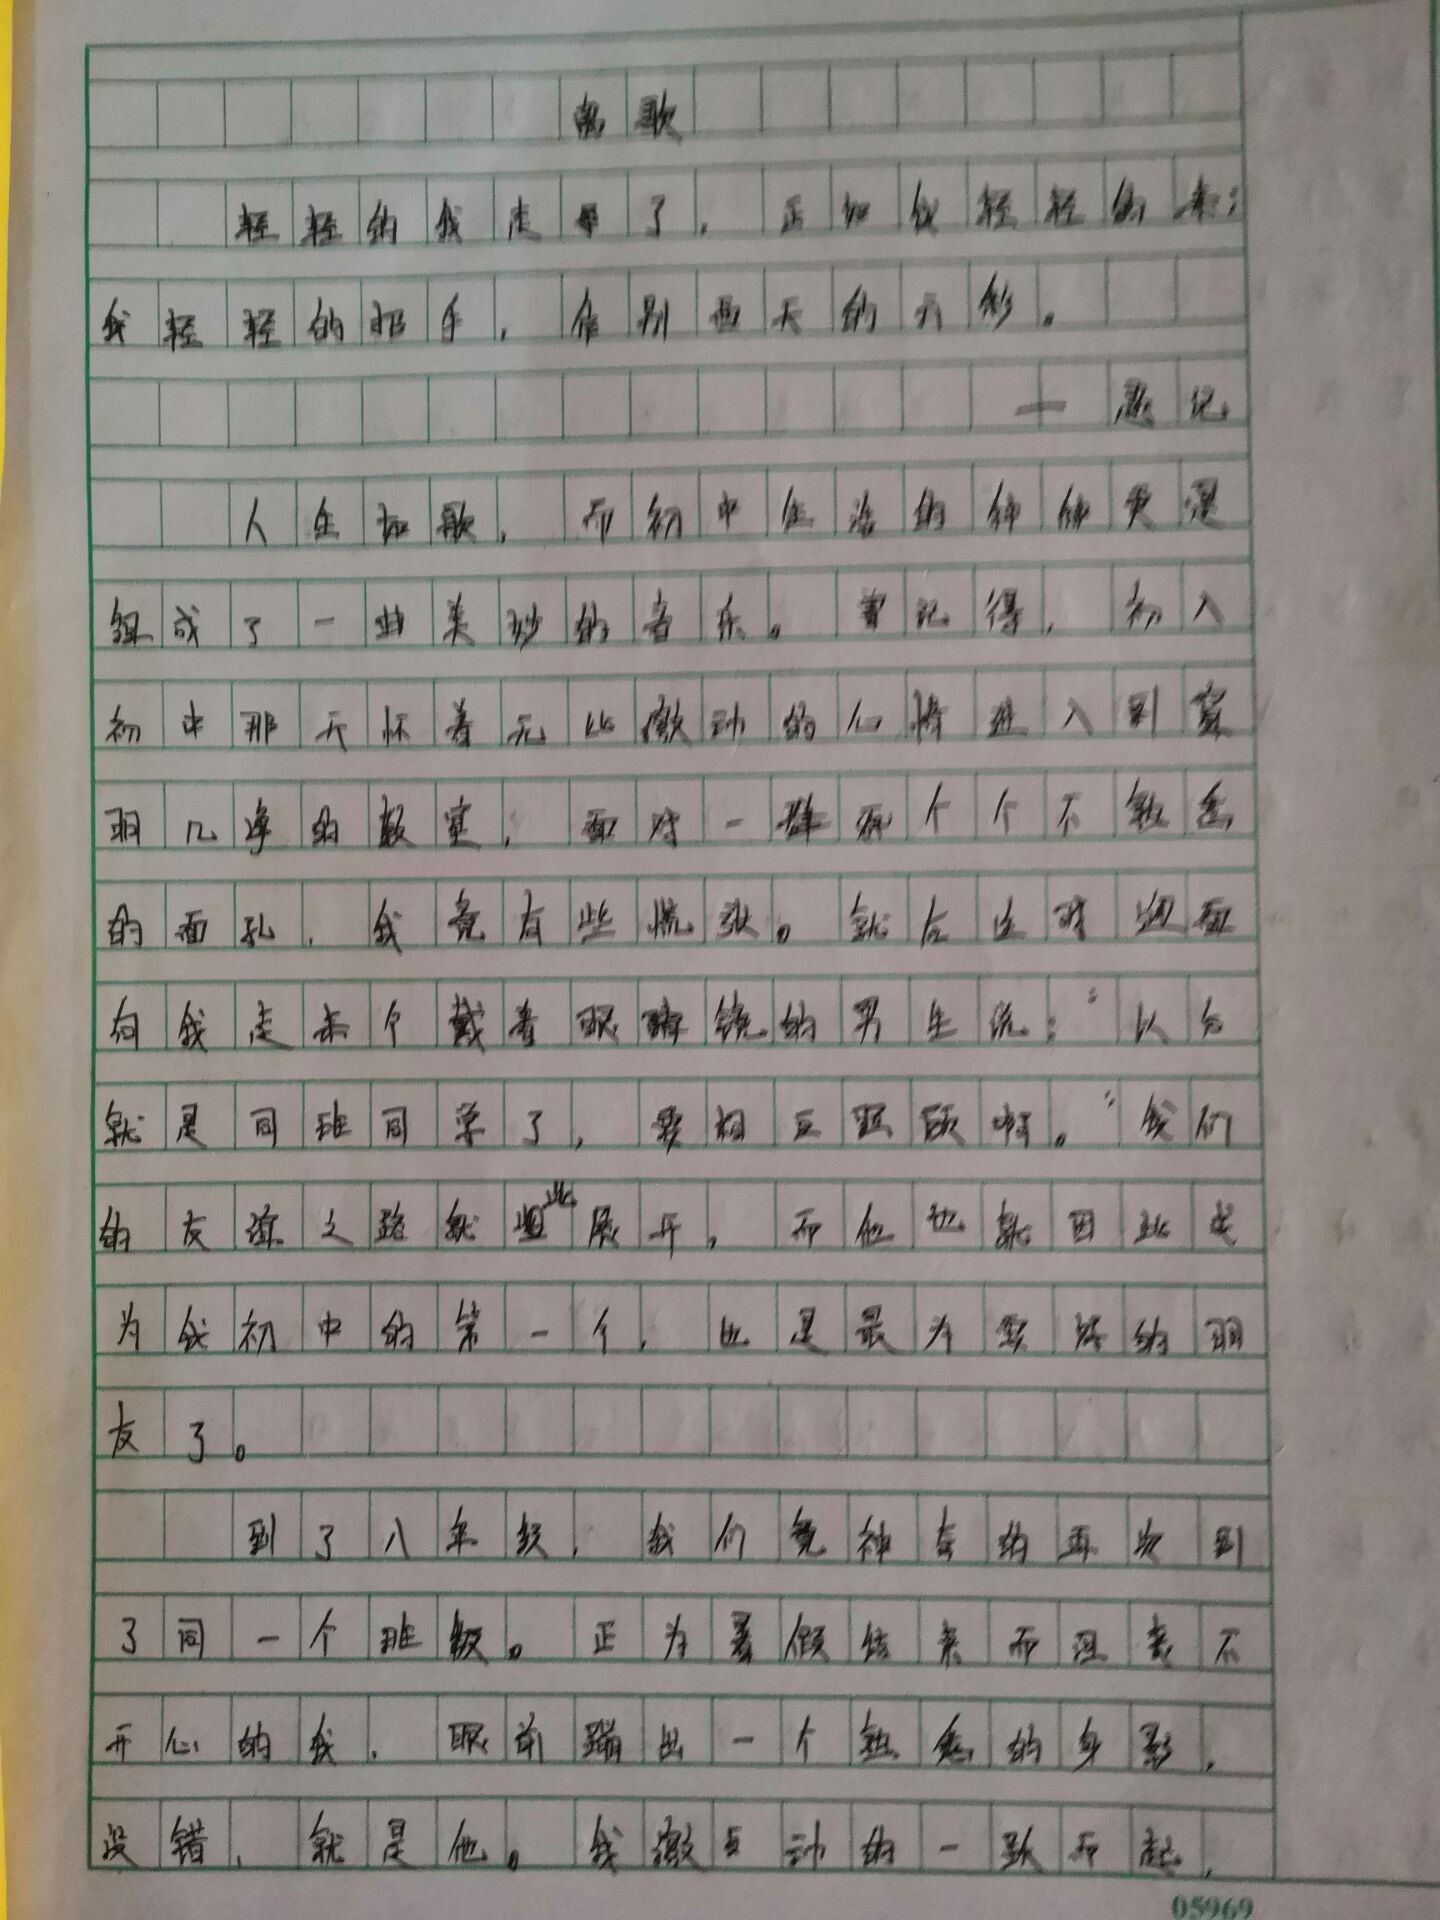 离歌
轻轻的我走了，正如我轻轻的来；
我轻轻的招手，作别西天的云彩。
——题记
人生如歌，而初中生活的种种更是
组成了一曲美妙的音乐。曾记得，初入
初中那天怀着无比激动的心情进入到窗
明几净的教室，面对一群 个个不熟悉
的面孔，我竟有些慌张。就在这时迎面
向我走来个戴着眼睛镜的男生说："以后
就是同班同学了，要相互照顾啊。"我们
的友谊之路就此展开，而他也就因此成
为我初中的第一个，也是最为要好的朋
友了。
到了八年级，我们竟神奇的再次到
了同一个班级。正为暑假结束而沮丧不
开心的我，眼前蹦出一个熟悉的身影，
没错，就是他。我激动的一跃而起，
05969